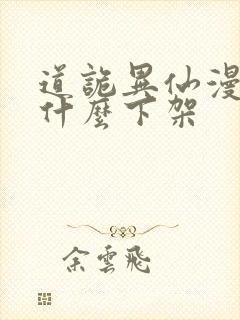 道詭異仙漫
什麼下架
余雲飛